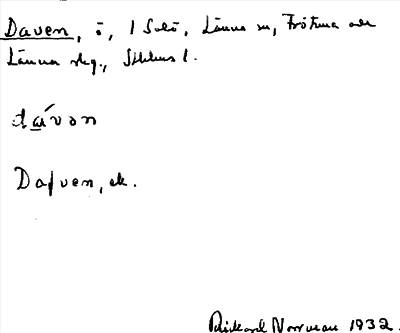 Daven, ö, 1 Solö, Länna sn, Frötuna och
Länna skg., Sthlms l.
dávən
Dafven, ek.
Rickard Norrman 1932.